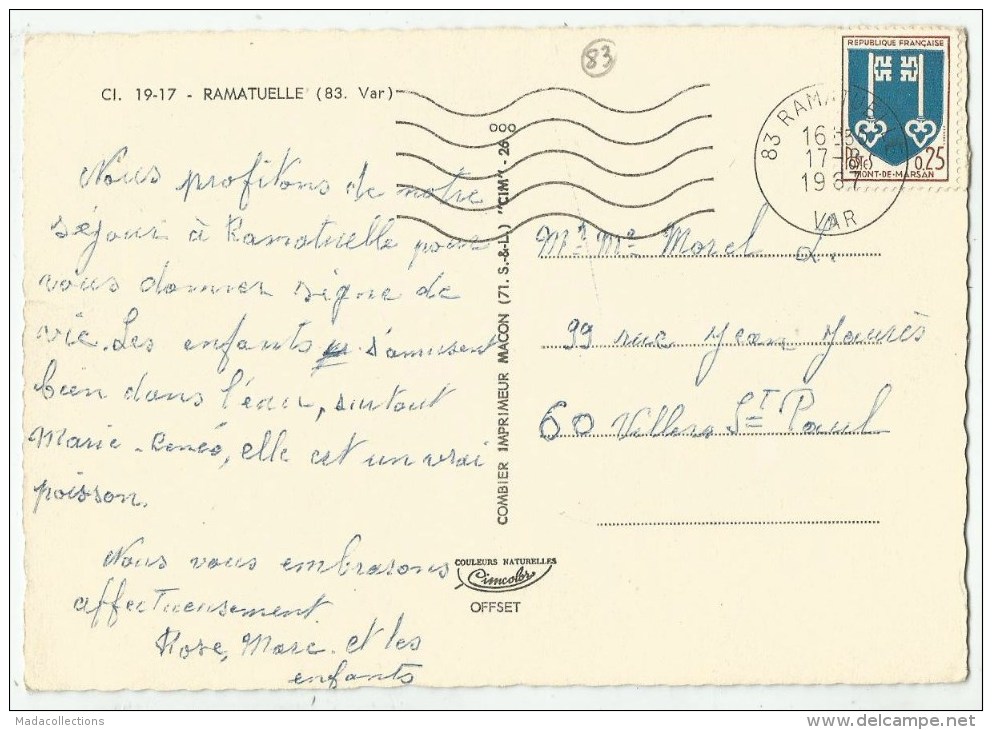 83
REPUBLIQUE FRANÇAISE
0,25
MONT-DE-MARSAN
83 RAMATUELLE
16 H
17-8
1967
VAR
CI. 19-17 - RAMATUELLE (83. Var)
Nous profitons de notre
séjour à Ramatuelle pour
vous donner signe de
vie. Les enfants s'amusent
bien dans l'eau, surtout
Marie-Renée, elle est un vrai
poisson.
Nous vous embrassons
affectueusement.
Rose, Marc et les
enfants
COMBIER IMPRIMEUR MACON (71. S.-&-L.) "CIM" - 26 000
COULEURS NATURELLES
Cimcolor
OFFSET
Mr Me Morel L.
99 rue Jean Jaurès
60 Villers St Paul
Madacollections
delcampe.net